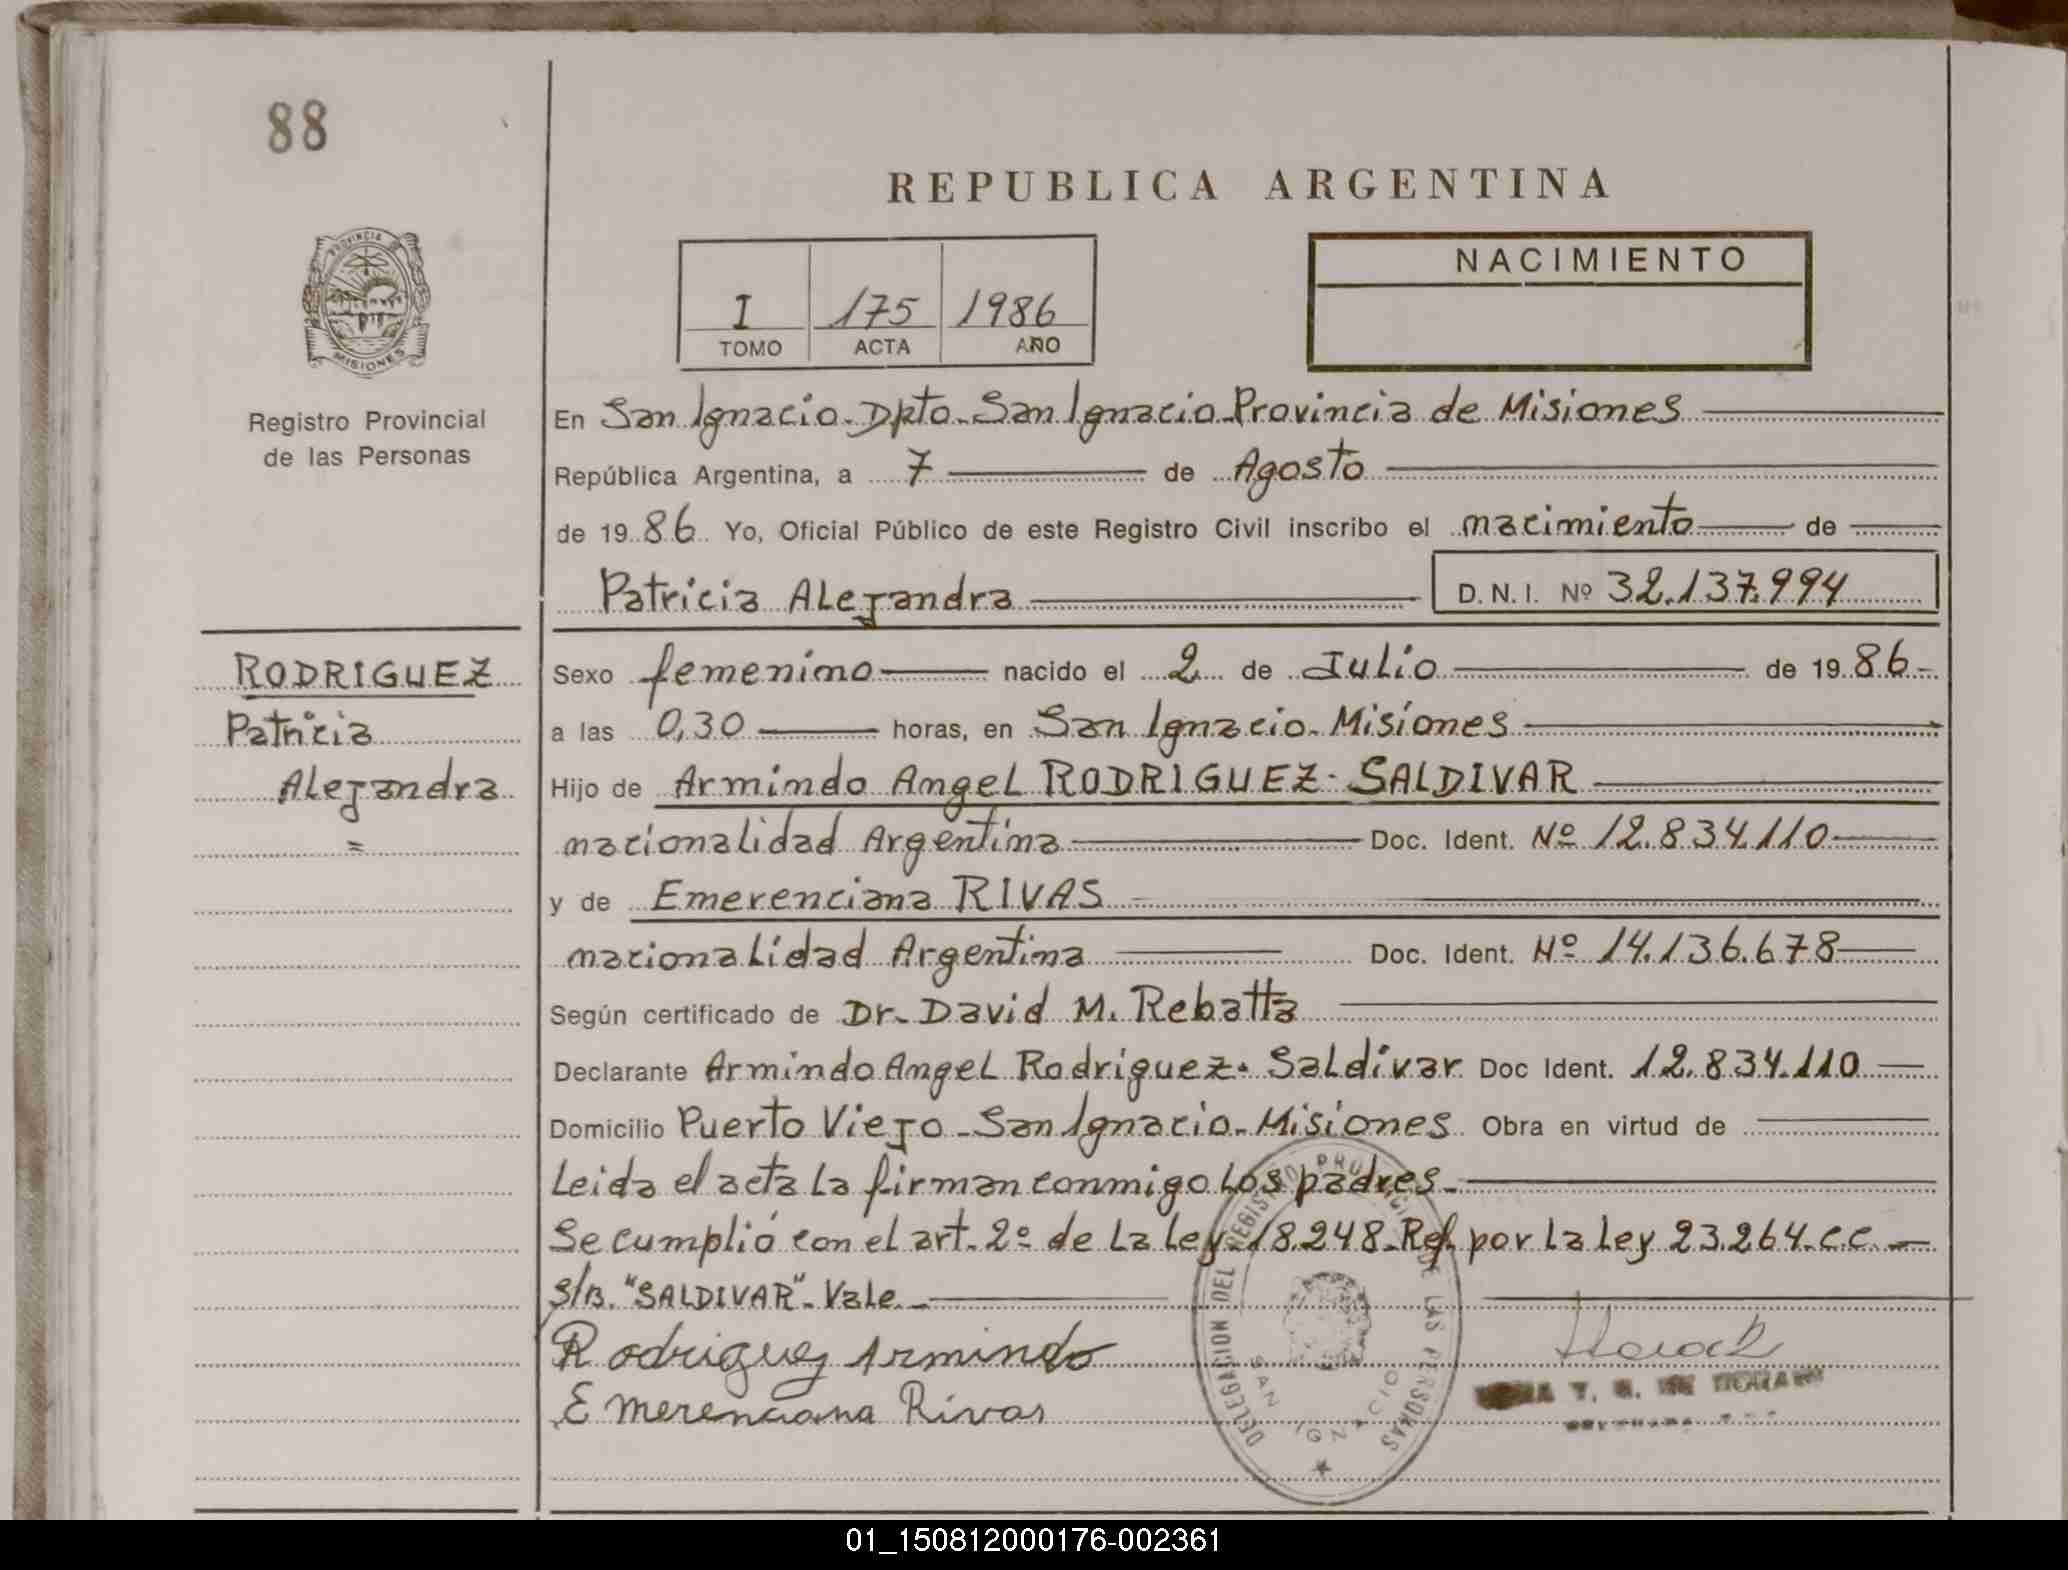 88
REPUBLICA ARGENTINA
PROVINCIA DE
MISIONES
NACIMIENTO
I 175 1986
TOMO ACTA AÑO
Registro Provincial
de las Personas
En San Ignacio-Dpto-San Ignacio-Provincia de Misiones
República Argentina, a 7 de Agosto
de 1986 Yo, Oficial Público de este Registro Civil inscribo el nacimiento de
Patricia Alejandra D.N.I. Nº 32.137.994
RODRIGUEZ
Patricia
Alejandra
=
Sexo femenino nacido el 2 de Julio de 1986-
a las 0,30 horas, en San Ignacio-Misiones
Hijo de Armindo Angel RODRIGUEZ-SALDIVAR
nacionalidad Argentina Doc. Ident. Nº 12.834.110
y de Emerenciana RIVAS
nacionalidad Argentina Doc. Ident. Nº 14.136.678
Según certificado de Dr. David M. Rebatta
Declarante Armindo Angel Rodriguez-Saldivar Doc Ident. 12.834.110
Domicilio Puerto Viejo-San Ignacio-Misiones Obra en virtud de
Leida el acta la firman conmigo los padres-
Se cumplió con el art. 2º de la ley 18.248-Ref. por la ley 23.264-C.C.-
S/B. "SALDIVAR"-Vale-
Rodriguez Armindo
Emerenciana Rivas
DELEGACION DEL REGISTRO PROVINCIAL DE LAS PERSONAS
SAN IGNACIO
01_150812000176-002361